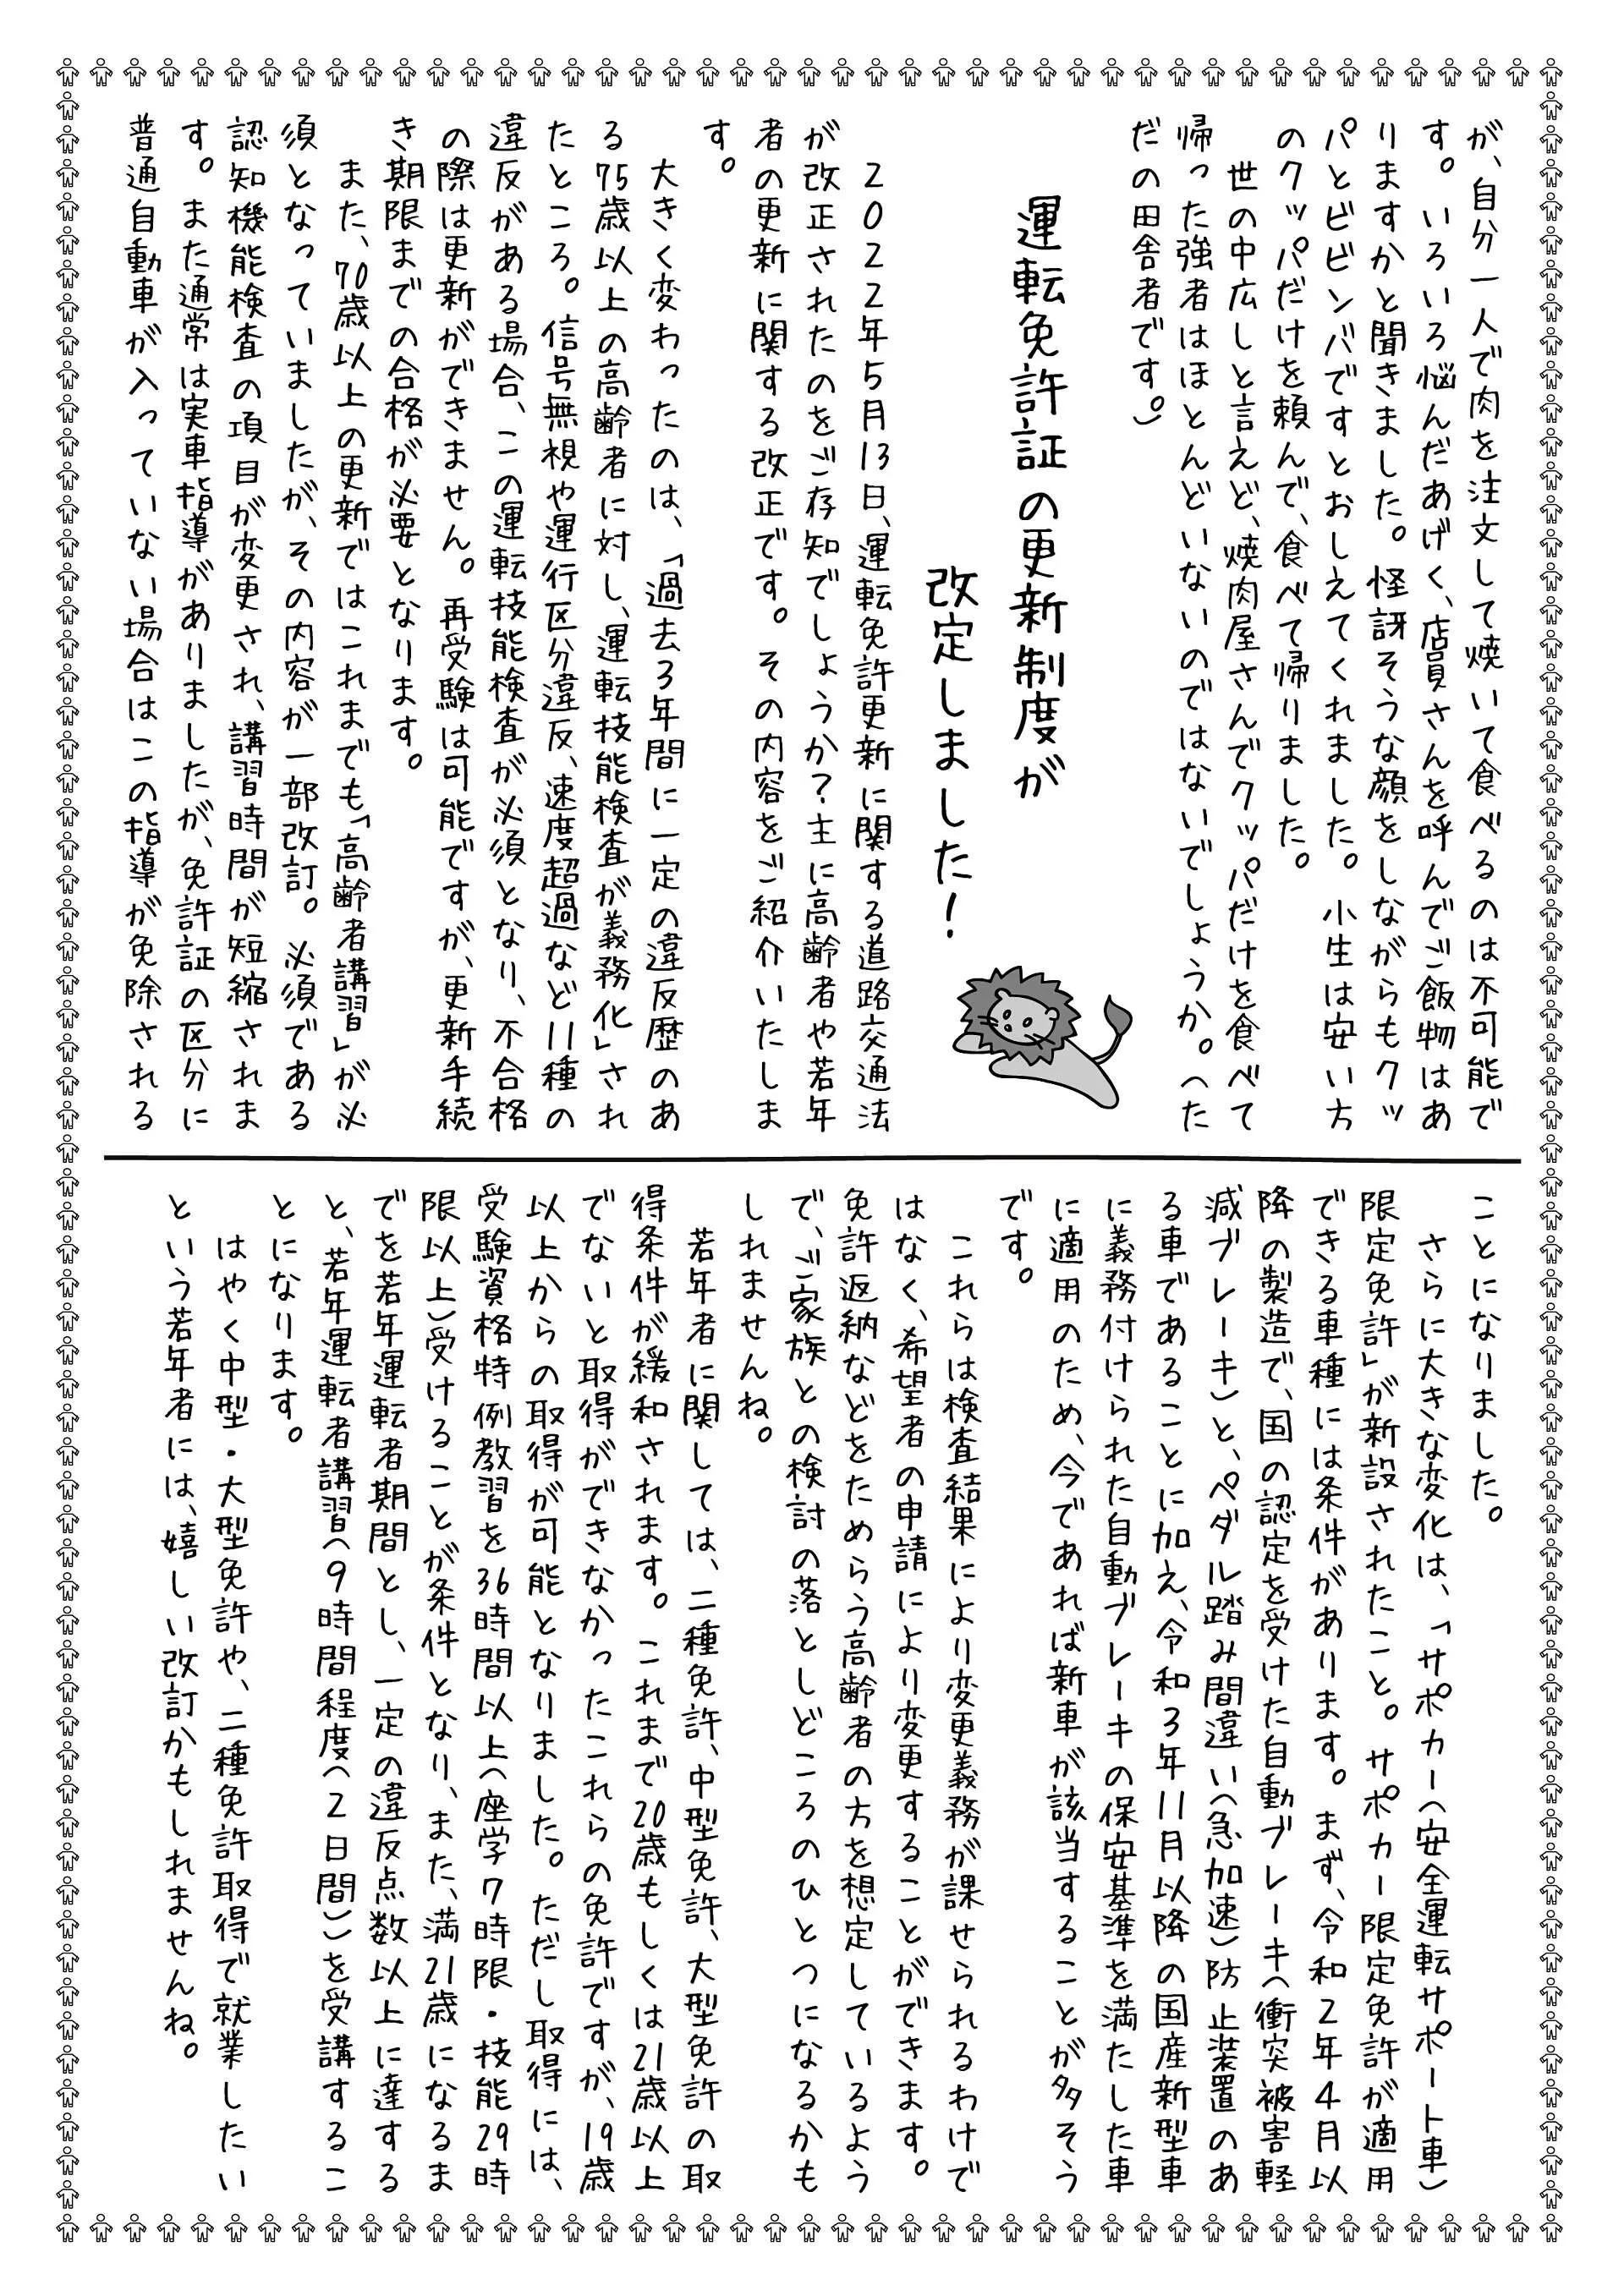 が、自分一人で肉を注文して焼いて食べるのは不可能で
す。いろいろ悩んだあげく、店員さんを呼んでご飯物はあ
りますかと聞きました。怪訝そうな顔をしながらもクッ
パとビビンバですとおしえてくれました。小生は安い方
のクッパだけを頼んで、食べて帰りました。
世の中広しと言えど、焼肉屋さんでクッパだけを食べて
帰った強者はほとんどいないのではないでしょうか。（た
だの田舎者です。）
運転免許証の更新制度が
改定しました！
２０２２年５月13日、運転免許更新に関する道路交通法
が改正されたのをご存知でしょうか？主に高齢者や若年
者の更新に関する改正です。その内容をご紹介いたしま
す。
大きく変わったのは、「過去３年間に一定の違反歴のあ
る75歳以上の高齢者に対し、運転技能検査が義務化」され
たところ。信号無視や運行区分違反、速度超過など11種の
違反がある場合、この運転技能検査が必須となり、不合格
の際は更新ができません。再受験は可能ですが、更新手続
き期限までの合格が必要となります。
また、70歳以上の更新ではこれまでも「高齢者講習」が必
須となっていましたが、その内容が一部改訂。必須である
認知機能検査の項目が変更され、講習時間が短縮されま
す。また通常は実車指導がありましたが、免許証の区分に
普通自動車が入っていない場合はこの指導が免除される
ことになりました。
さらに大きな変化は、「サポカー（安全運転サポート車）
限定免許」が新設されたこと。サポカー限定免許が適用
できる車種には条件があります。まず、令和２年４月以
降の製造で、国の認定を受けた自動ブレーキ（衝突被害軽
減ブレーキ）と、ペダル踏み間違い（急加速）防止装置のあ
る車であることに加え、令和３年11月以降の国産新型車
に義務付けられた自動ブレーキの保安基準を満たした車
に適用のため、今であれば新車が該当することが多そう
です。
これらは検査結果により変更義務が課せられるわけで
はなく、希望者の申請により変更することができます。
免許返納などをためらう高齢者の方を想定しているよう
で、ご家族との検討の落としどころのひとつになるかも
しれませんね。
若年者に関しては、二種免許、中型免許、大型免許の取
得条件が緩和されます。これまで20歳もしくは21歳以上
でないと取得ができなかったこれらの免許ですが、19歳
以上からの取得が可能となりました。ただし取得には、
受験資格特例教習を36時間以上（座学７時限・技能29時
限以上）受けることが条件となり、また、満21歳になるま
でを若年運転者期間とし、一定の違反点数以上に達する
と、若年運転者講習（９時間程度（２日間））を受講するこ
とになります。
はやく中型・大型免許や、二種免許取得で就業したい
という若年者には、嬉しい改訂かもしれませんね。